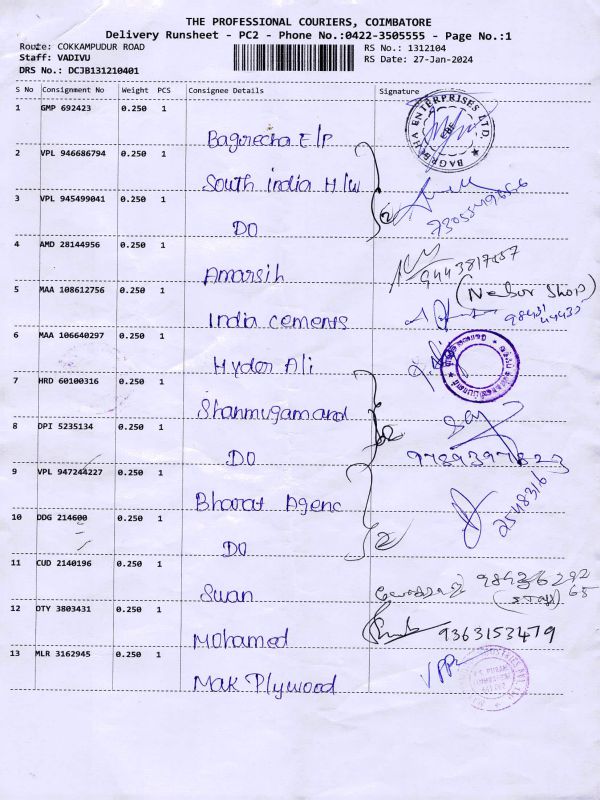 THE PROFESSIONAL COURIERS, COIMBATORE
Delivery Runsheet - PC2 - Phone No.:0422-3505555 - Page No.:1
Route: COKKAMPUDUR ROAD
Staff: VADIVU
DRS No.: DCJB131210401
RS No.: 1312104
RS Date: 27-Jan-2024
S No Consignment No Weight PCS Consignee Details Signature
1 GMP 692423 0.250 1 Bagrecha E/P
BAGRECHA ENTERPRISES LTD.
2 VPL 946686794 0.250 1 South india H/w
3 VPL 945499041 0.250 1 DO
4 AMD 28144956 0.250 1 Amarsih
5 MAA 108612756 0.250 1 India cements
(Nebur Shop)
6 MAA 106640297 0.250 1 Hyder Ali
7 HRD 60100316 0.250 1 Shanmugamand
8 DPI 5235134 0.250 1 DO
9789397823
9 VPL 947244227 0.250 1 Bharat Agenc
2548316
10 DDG 214600 0.250 1 DO
11 CUD 2140196 0.250 1 Swan
12 OTY 3803431 0.250 1 Mohamed
9363153479
13 MLR 3162945 0.250 1 Mak Plywood